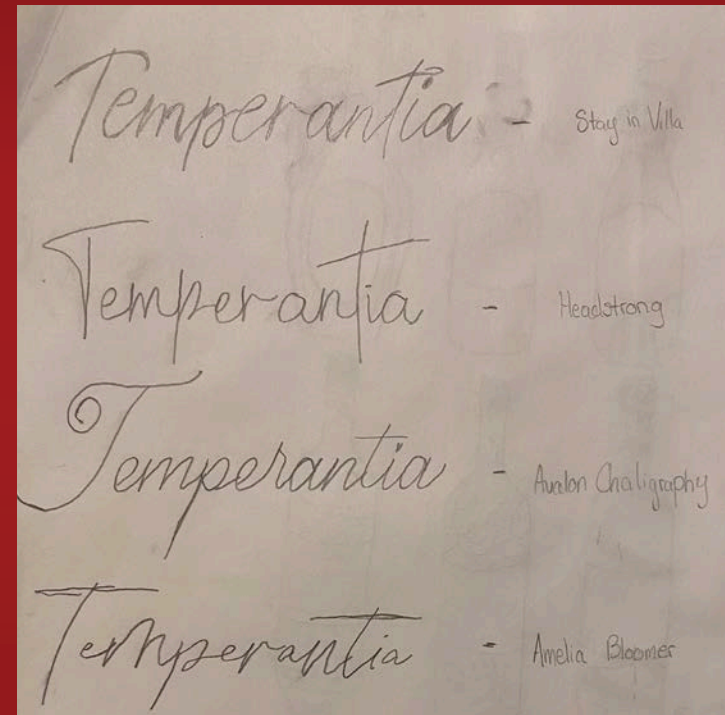 Temperantia - Stay in Villa
Temperantia - Headstrong
Temperantia - Avalon Chaligraphy
Temperantia - Amelia Bloomer